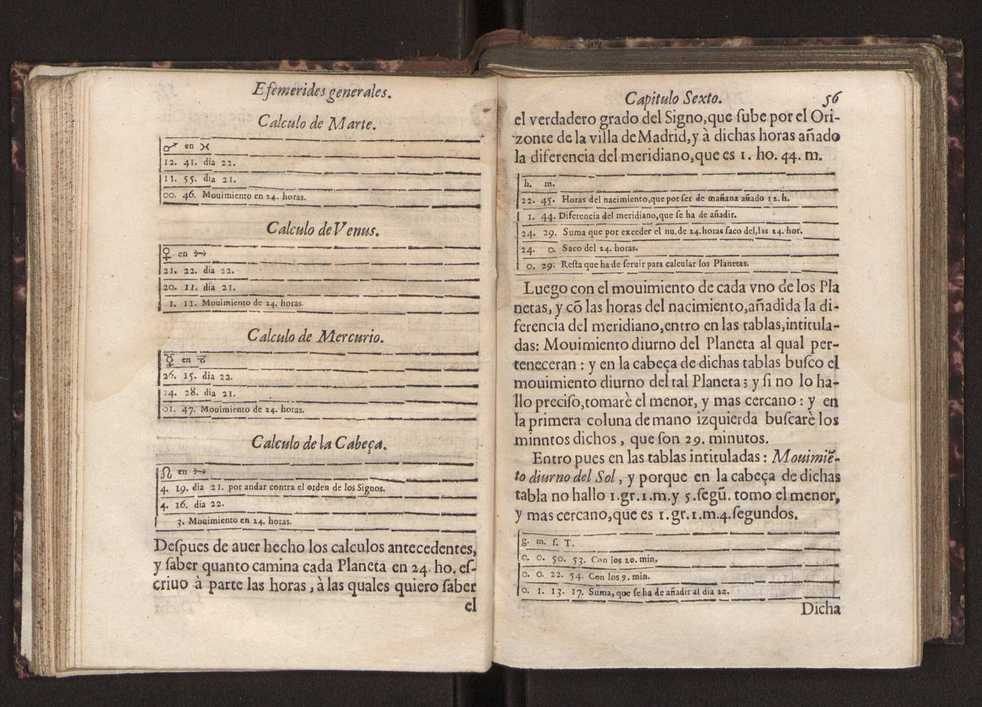 Efemerides generales.
Calculo de Marte.
♂ en ♓
12. 41. dia 22.
11. 55. dia 21.
00. 46. Mouimiento en 24. horas.
Calculo de Venus.
♀ en ♐
21. 22. dia 22.
20. 11. dia 21.
1. 11. Mouimiento de 24. horas.
Calculo de Mercurio.
☿ en ♉
26. 15. dia 22.
24. 28. dia 21.
01. 47. Mouimiento de 24. horas.
Calculo de la Cabeça.
☊ en ♐
4. 19. dia 21. por andar contra el orden de los Signos.
4. 16. dia 22.
3. Mouimiento en 24. horas.
Deſpues de auer hecho los calculos antecedentes,
y ſaber quanto camina cada Planeta en 24. ho. eſ-
criuo à parte las horas, à las quales quiero ſaber
el
Capitulo Sexto. 56
el verdadero grado del Signo, que ſube por el Ori-
zonte de la villa de Madrid, y à dichas horas añado
la diferencia del meridiano, que es 1. ho. 44. m.
h. m.
22. 45. Horas del nacimiento, que por ſer de mañana añado 12. h.
1. 44. Diferencia del meridiano, que ſe ha de añadir.
24. 29. Suma que por exceder el nu. de 24. horas ſaco del, las 24. hor.
24. 0. Saco del 24. horas.
0. 29. Reſta que ha de ſeruir para calcular los Planetas.
Luego con el mouimiento de cada vno de los Pla
netas, y cõ las horas del nacimiento, añadida la di-
ferencia del meridiano, entro en las tablas, intitula-
das: Mouimiento diurno del Planeta al qual per-
teneceran : y en la cabeça de dichas tablas buſco el
mouimiento diurno del tal Planeta; y ſi no lo ha-
llo preciſo, tomarè el menor, y mas cercano : y en
la primera coluna de mano izquierda buſcarè los
minntos dichos, que ſon 29. minutos.
Entro pues en las tablas intituladas : Mouimiẽ-
to diurno del Sol, y porque en la cabeça de dichas
tabla no hallo 1. gr. 1. m. y 5. ſegũ. tomo el menor,
y mas cercano, que es 1. gr. 1. m. 4. ſegundos.
g. m. ſ. T.
0. 0. 50. 53. Con los 20. min.
0. 0. 22. 54. Con los 9. min.
0. 1. 13. 17. Suma, que ſe ha de añadir al dia 22.
Dicha